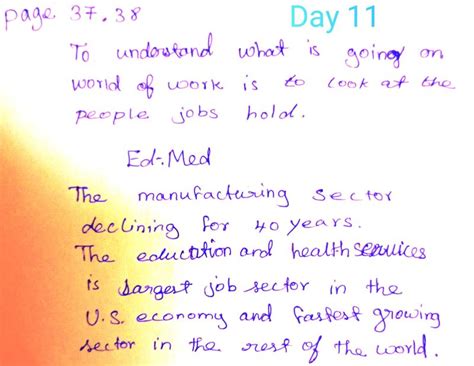 page 37.38
Day 11
To understand what is going on
world of work is to look at the
people jobs hold.
Ed-Med
The manufacturing sector
declining for 40 years.
The eductation and health serwices
is largest job sector in the
U.S. economy and fastest growing
sector in the rest of the world.